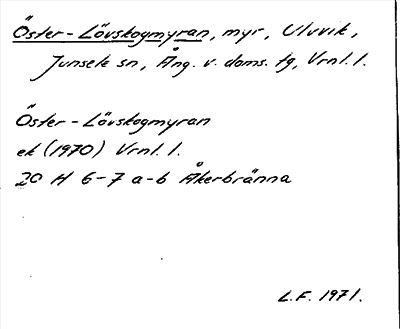 Öster-Lövskogmyran, myr, Uluvik,
Junsele sn, Ång. v. doms. tg, Vrnl. l.
Öster-Lövskogmyran
ek (1970) Vrnl. l.
20 H 6-7 a-b Åkerbränna
L.F. 1971.